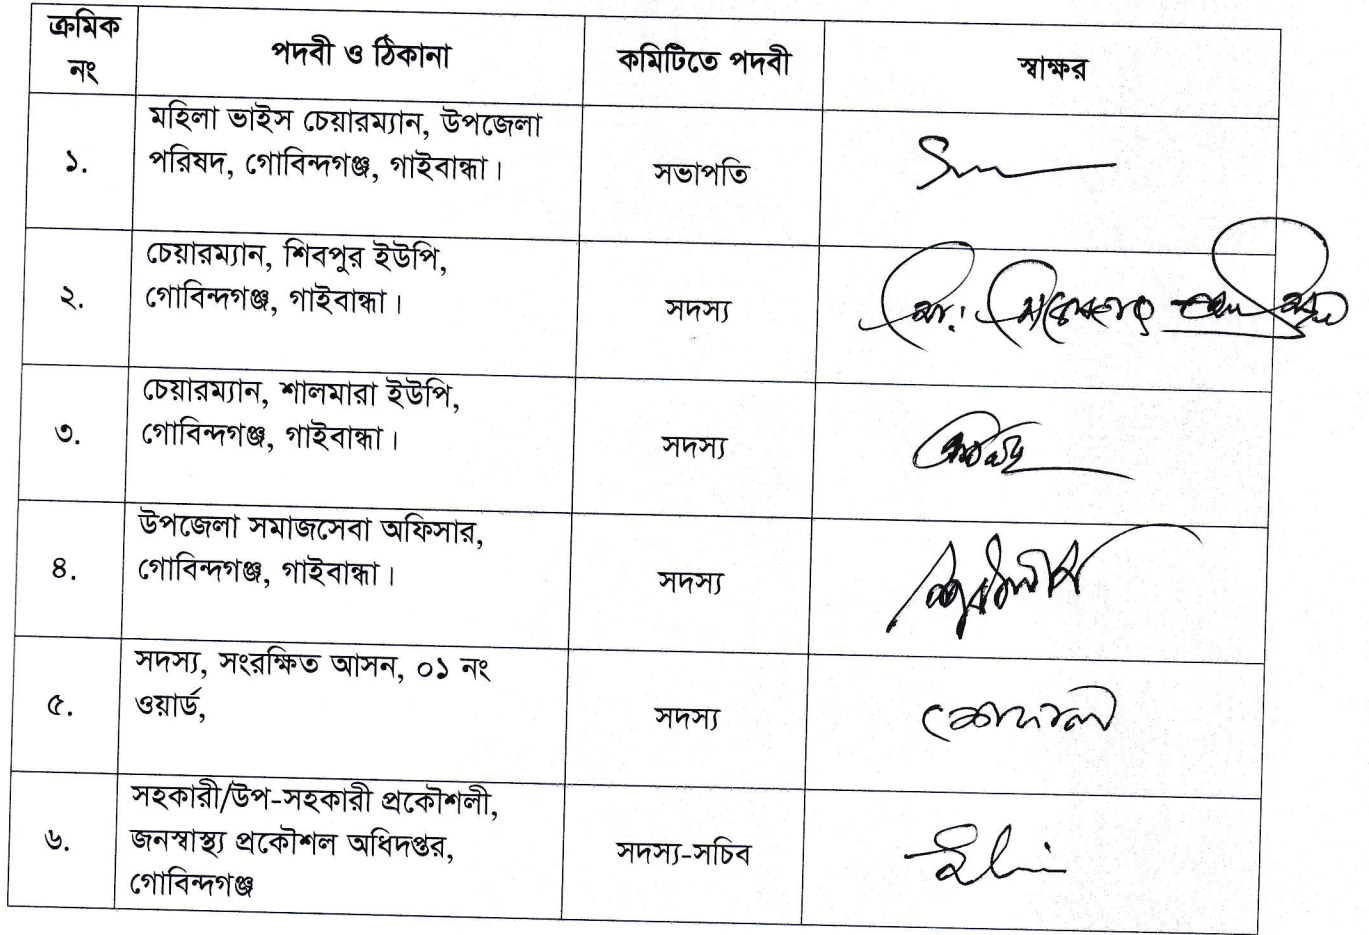 ক্রমিক নং | পদবী ও ঠিকানা | কমিটিতে পদবী | স্বাক্ষর
১. | মহিলা ভাইস চেয়ারম্যান, উপজেলা
পরিষদ, গোবিন্দগঞ্জ, গাইবান্ধা। | সভাপতি
২. | চেয়ারম্যান, শিবপুর ইউপি,
গোবিন্দগঞ্জ, গাইবান্ধা। | সদস্য
৩. | চেয়ারম্যান, শালমারা ইউপি,
গোবিন্দগঞ্জ, গাইবান্ধা। | সদস্য
৪. | উপজেলা সমাজসেবা অফিসার,
গোবিন্দগঞ্জ, গাইবান্ধা। | সদস্য
৫. | সদস্য, সংরক্ষিত আসন, ০১ নং
ওয়ার্ড, | সদস্য
৬. | সহকারী/উপ-সহকারী প্রকৌশলী,
জনস্বাস্থ্য প্রকৌশল অধিদপ্তর,
গোবিন্দগঞ্জ | সদস্য-সচিব